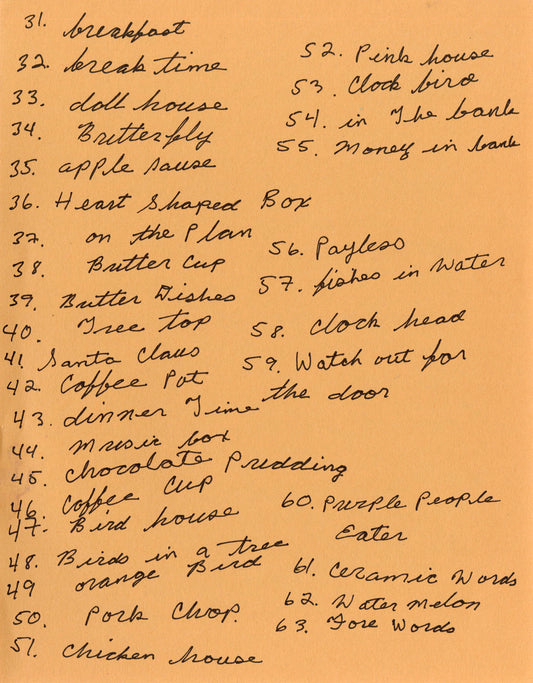 31. breakfast
32. break time
33. doll house
34. Butterfly
35. apple sause
36. Heart Shaped Box
37. on the Plan
38. Butter cup
39. Butter Dishes
40. Tree top
41. Santa Claus
42. Coffee Pot
43. dinner Time
44. music box
45. chocolate Pudding
46. Coffee Cup
47. Bird house
48. Birds in a tree
49 orange Bird
50. Pork Chop.
51. Chicken house
52. Pink house
53. Clock bird
54. in The bank
55. Money in bank
56. Payless
57. fishes in Water
58. Clock head
59. Watch out for
the door
60. Purple People
Eater
61. Ceramic Words
62. Water melon
63. Fore Words